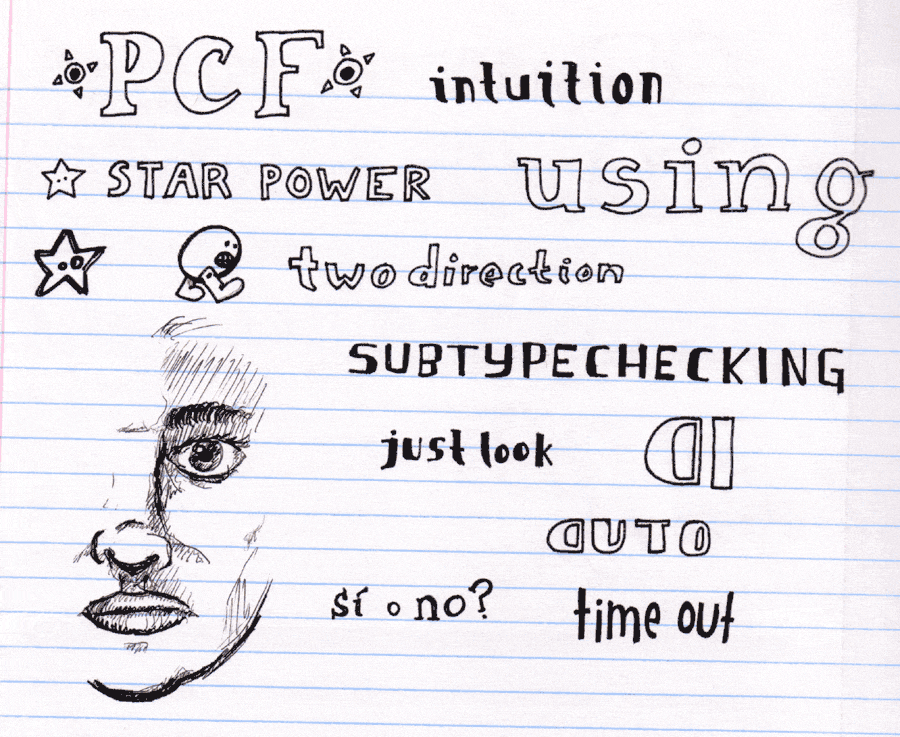 PCF
intuition
STAR POWER
using
two direction
SUBTYPECHECKING
just look
AUTO
sí o no?
time out